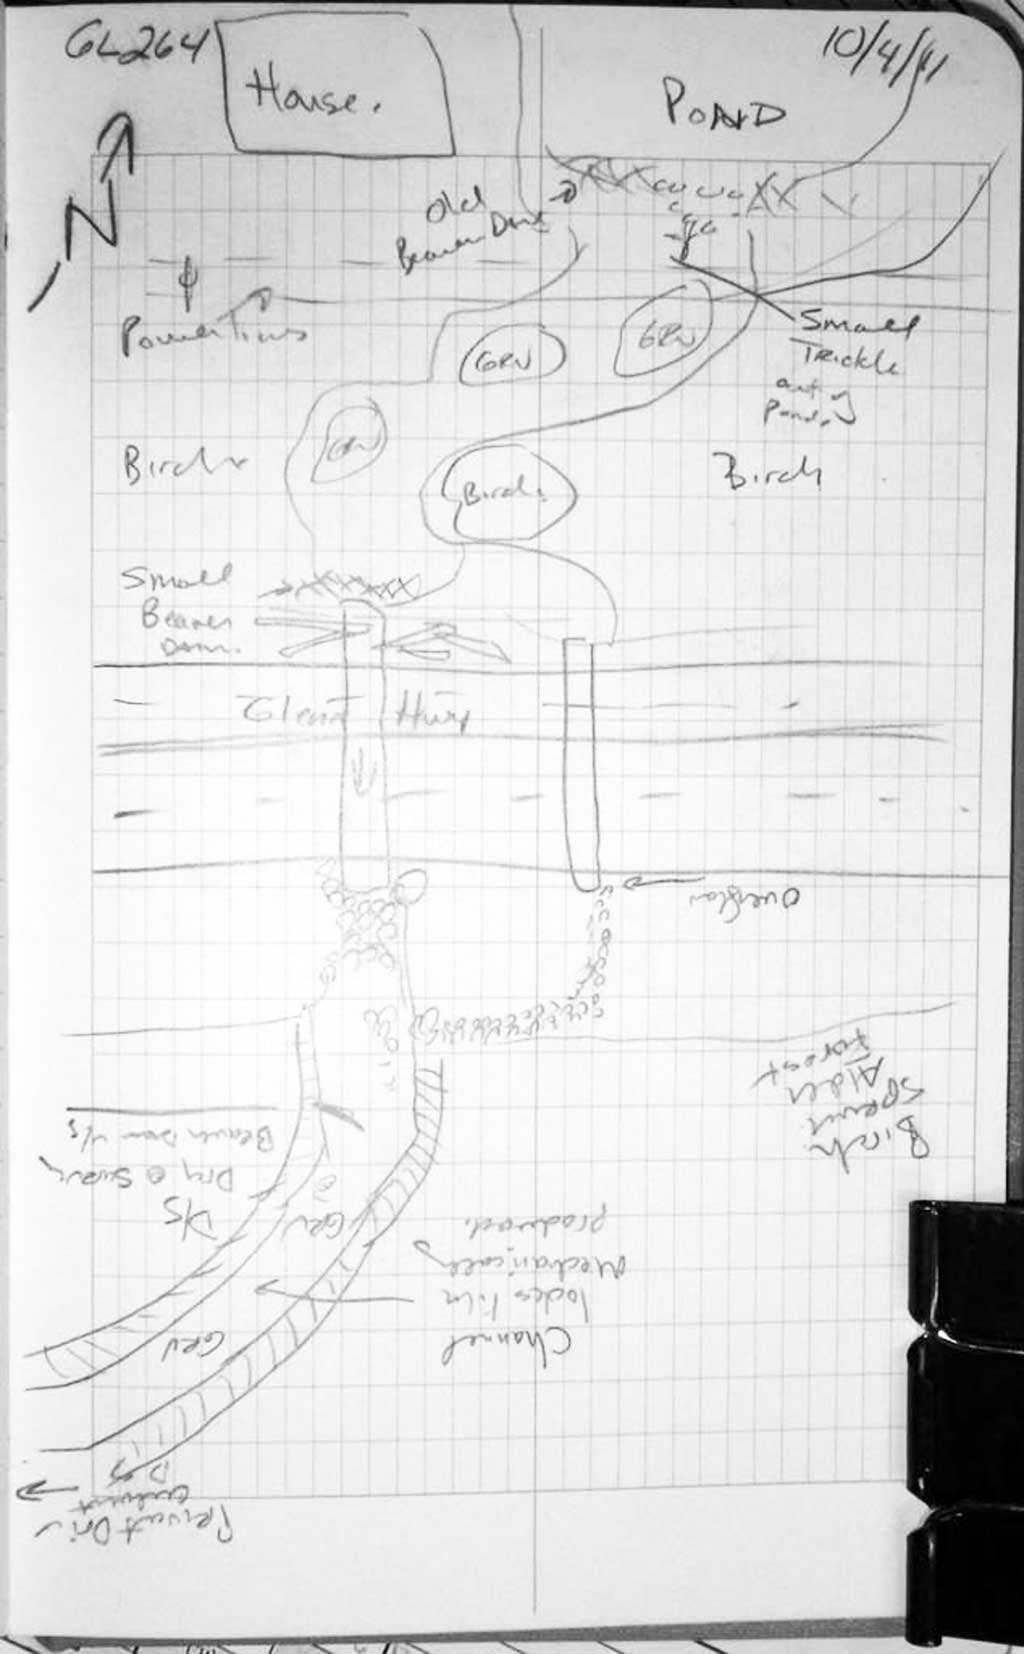 GL264
10/4/11
House.
POND
N
Old
Beaver Dam
Power Lines
GRV
GRV
Small
Trickle
out of
Pond.
GRV
Birch
Birch
Birch
Small
Beaver
Dam.
Glenn Hwy
Overflow
Birch
Spruce
Alder
Forest
Beaver Dam u/s
Dry @ Survey
D/S
GRV
GRV
Channel
looks like
Mechanically
produced.
D/S
culvert